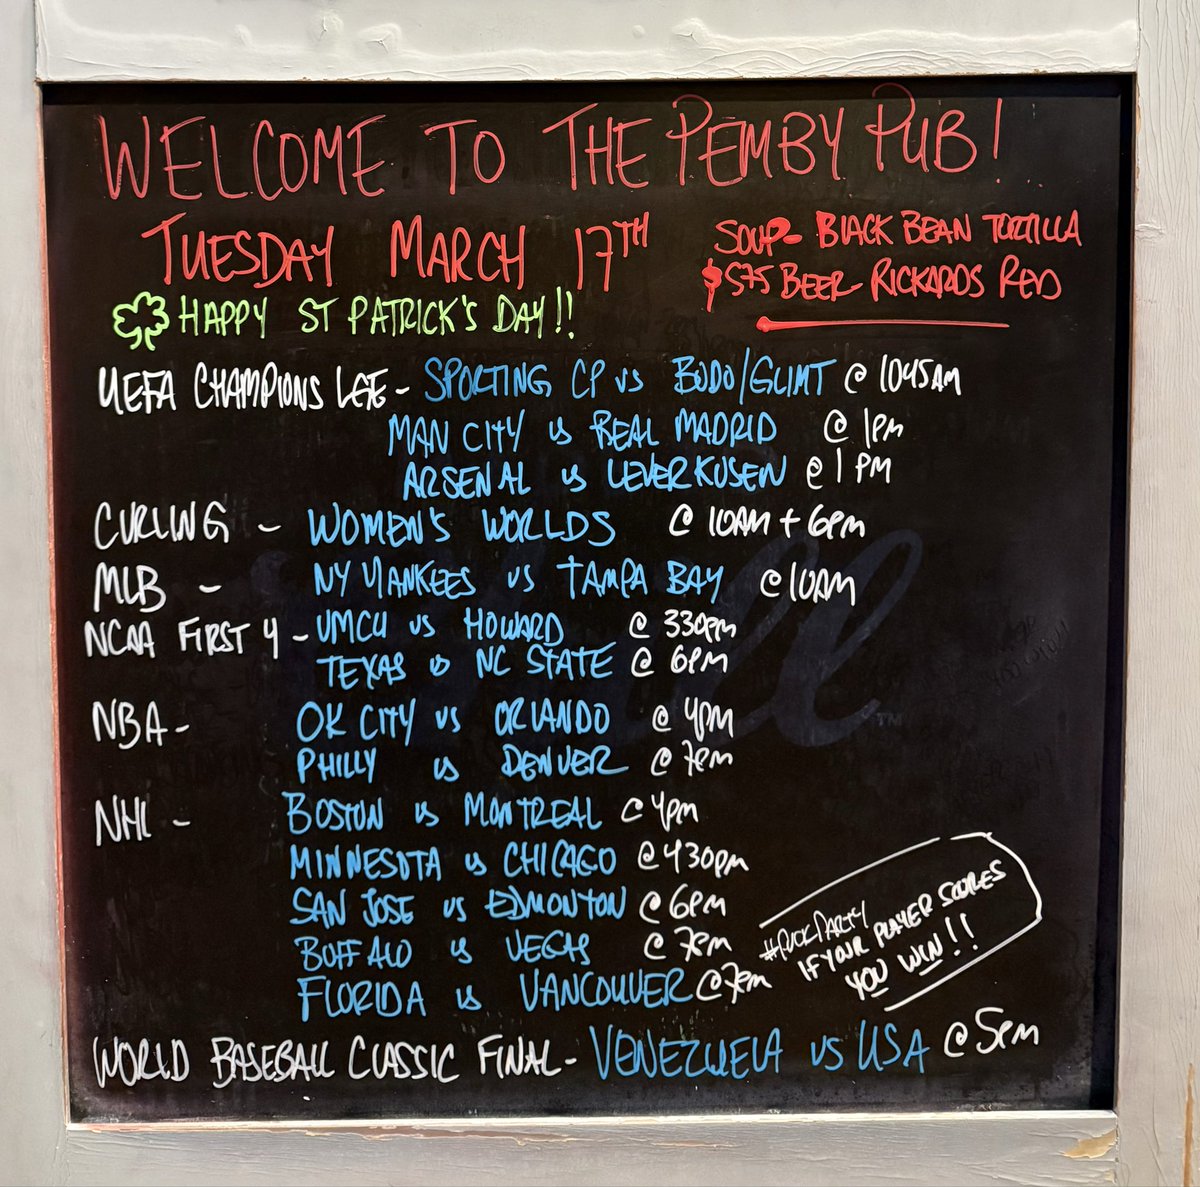 WELCOME TO THE PEMBY PUB!
TUESDAY MARCH 17TH
SOUP - BLACK BEAN TORTILLA
$575 BEER - RICKARDS RED
HAPPY ST PATRICK'S DAY!!
UEFA CHAMPIONS LGE - SPORTING CP VS BODO/GLIMT @ 1045AM
MAN CITY VS REAL MADRID @ 1PM
ARSENAL VS LEVERKUSEN @ 1 PM
CURLING - WOMEN'S WORLDS @ 10AM + 6PM
MLB - NY YANKEES VS TAMPA BAY @ 10AM
NCAA FIRST 4 - UMCU VS HOWARD @ 330PM
TEXAS VS NC STATE @ 6PM
NBA - OK CITY VS ORLANDO @ 4PM
PHILLY VS DENVER @ 7PM
NHL - BOSTON VS MONTREAL @ 4PM
MINNESOTA VS CHICAGO @ 430PM
SAN JOSE VS EDMONTON @ 6PM
BUFFALO VS VEGAS @ 7PM
FLORIDA VS VANCOUVER @ 7PM
#PUCKPARTY
IF YOUR PLAYER SCORES
YOU WIN!!
WORLD BASEBALL CLASSIC FINAL - VENEZUELA VS USA @ 5PM